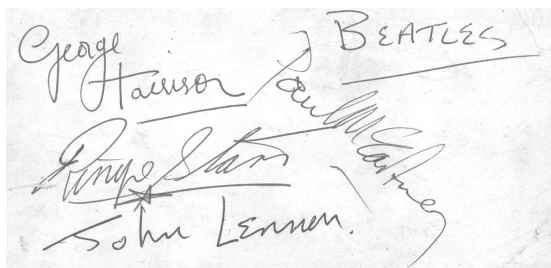 George
Harrison
BEATLES
Paul McCartney
Ringo Starr
John Lennon.